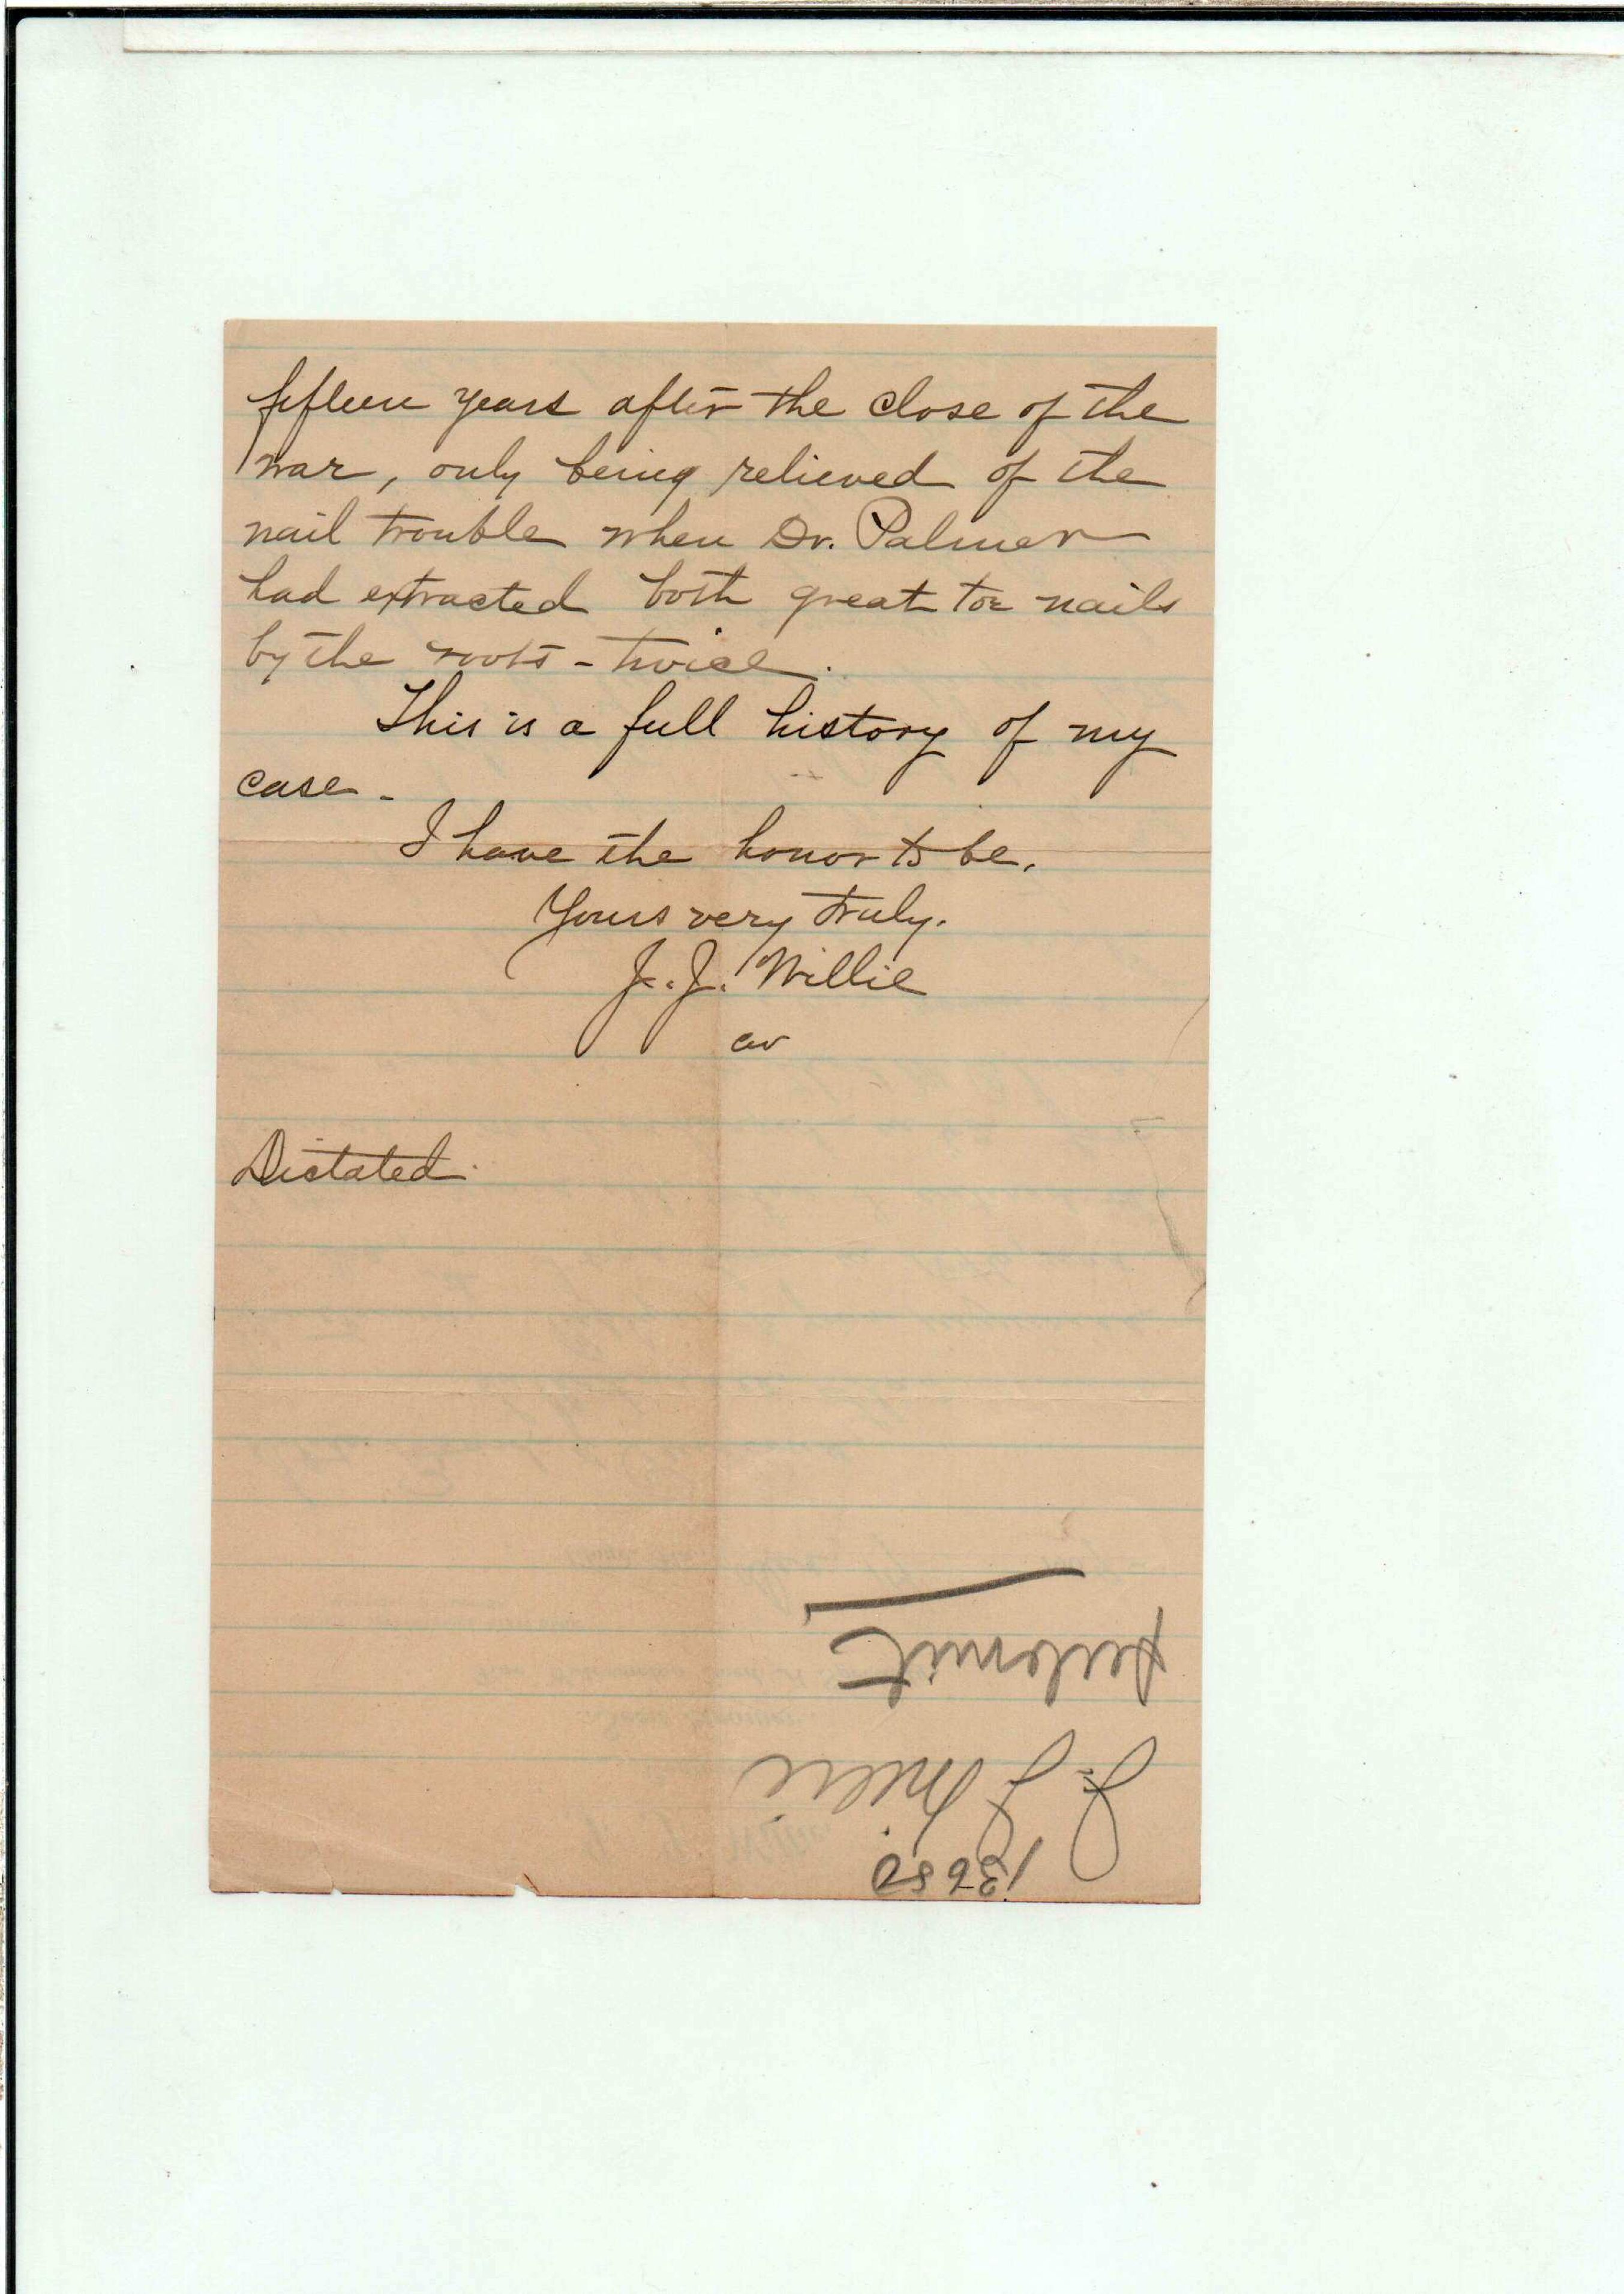 fifteen years after the close of the
war, only being relieved of the
nail trouble when Dr. Palmer
had extracted both great toe nails
by the roots - twice.
This is a full history of my
case -
I have the honor to be.
Yours very truly.
J. J. Willie
aw
Dictated.
13650
J. J. Willie